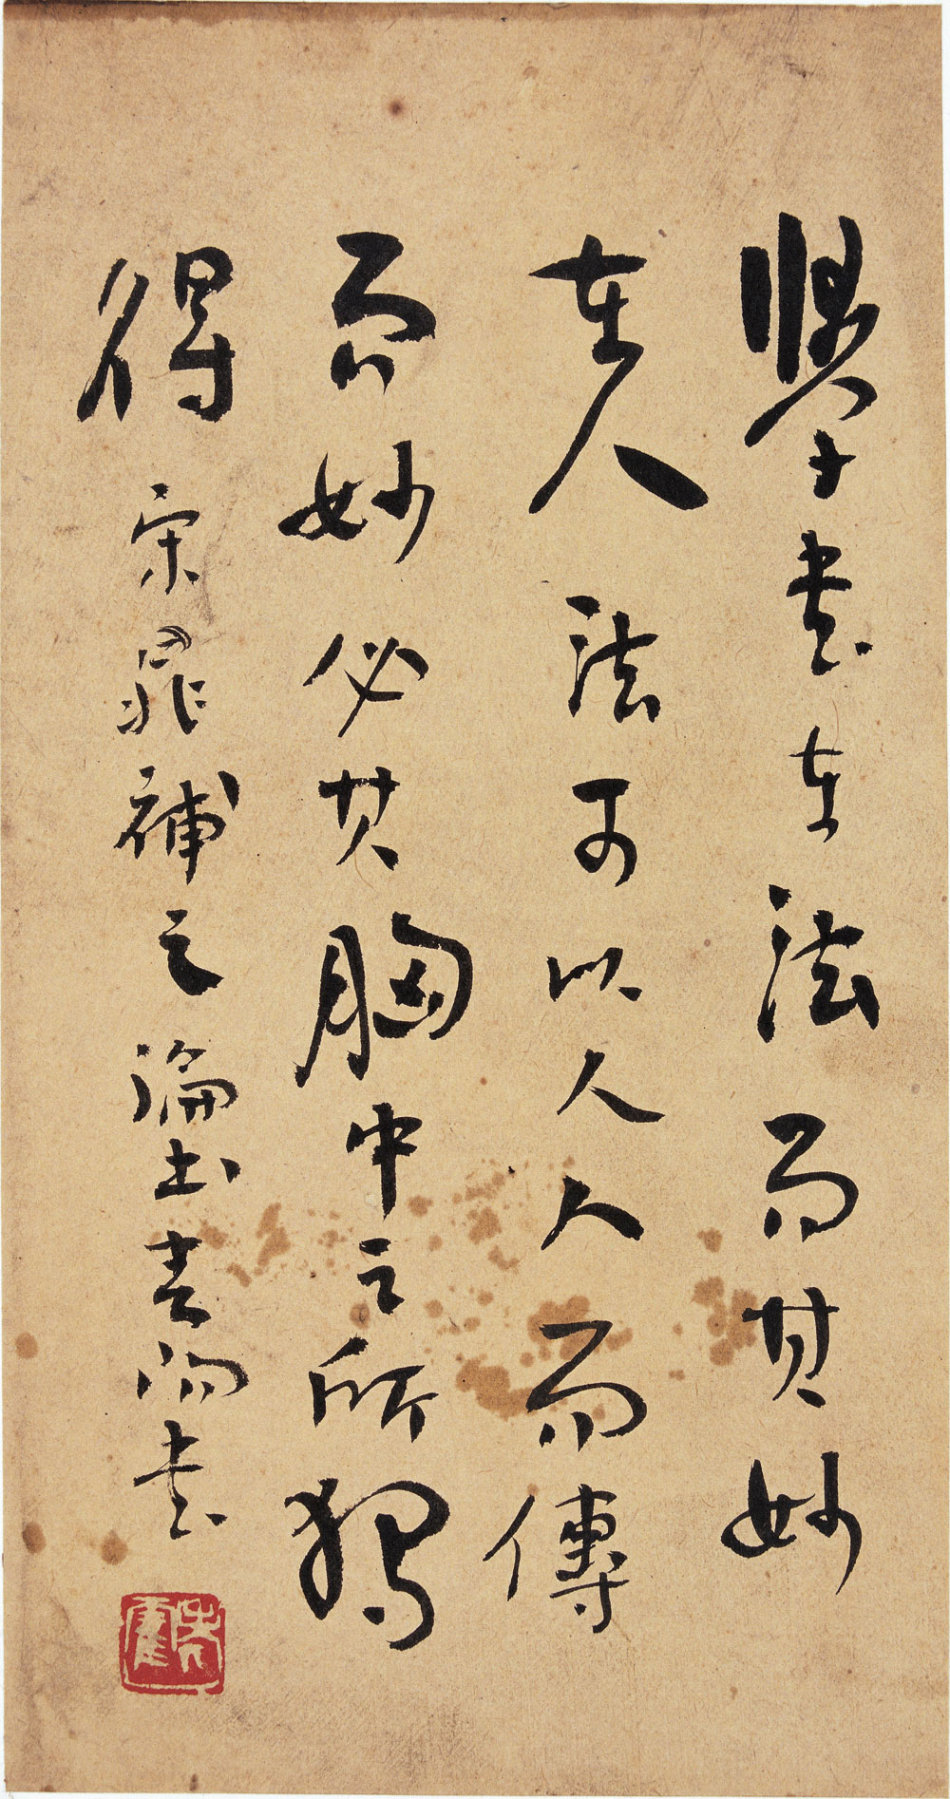 學書在法而其妙
在人法可以人人而傳
而妙必其胸中之所獨
得 宋晁補之論書 去病書